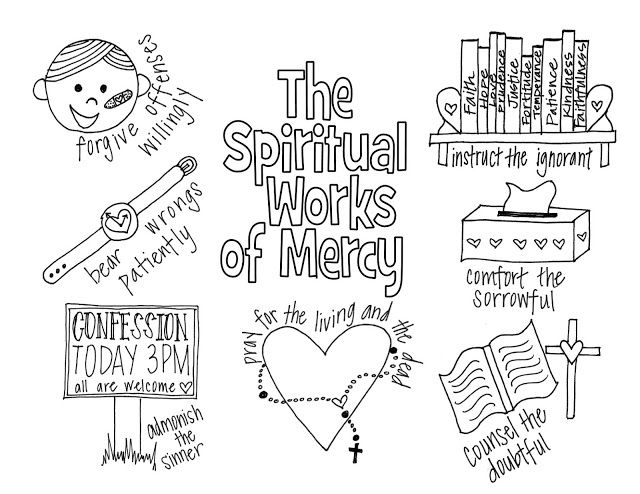 The
Spiritual
Works
of Mercy
forgive offenses
willingly
bear wrongs
patiently
CONFESSION
TODAY 3PM
all are welcome
admonish
the
sinner
pray for the living and the dead
Faith
Hope
Love
Prudence
Justice
Fortitude
Temperance
Patience
Kindness
Faithfulness
instruct the ignorant
comfort the
sorrowful
counsel the
doubtful